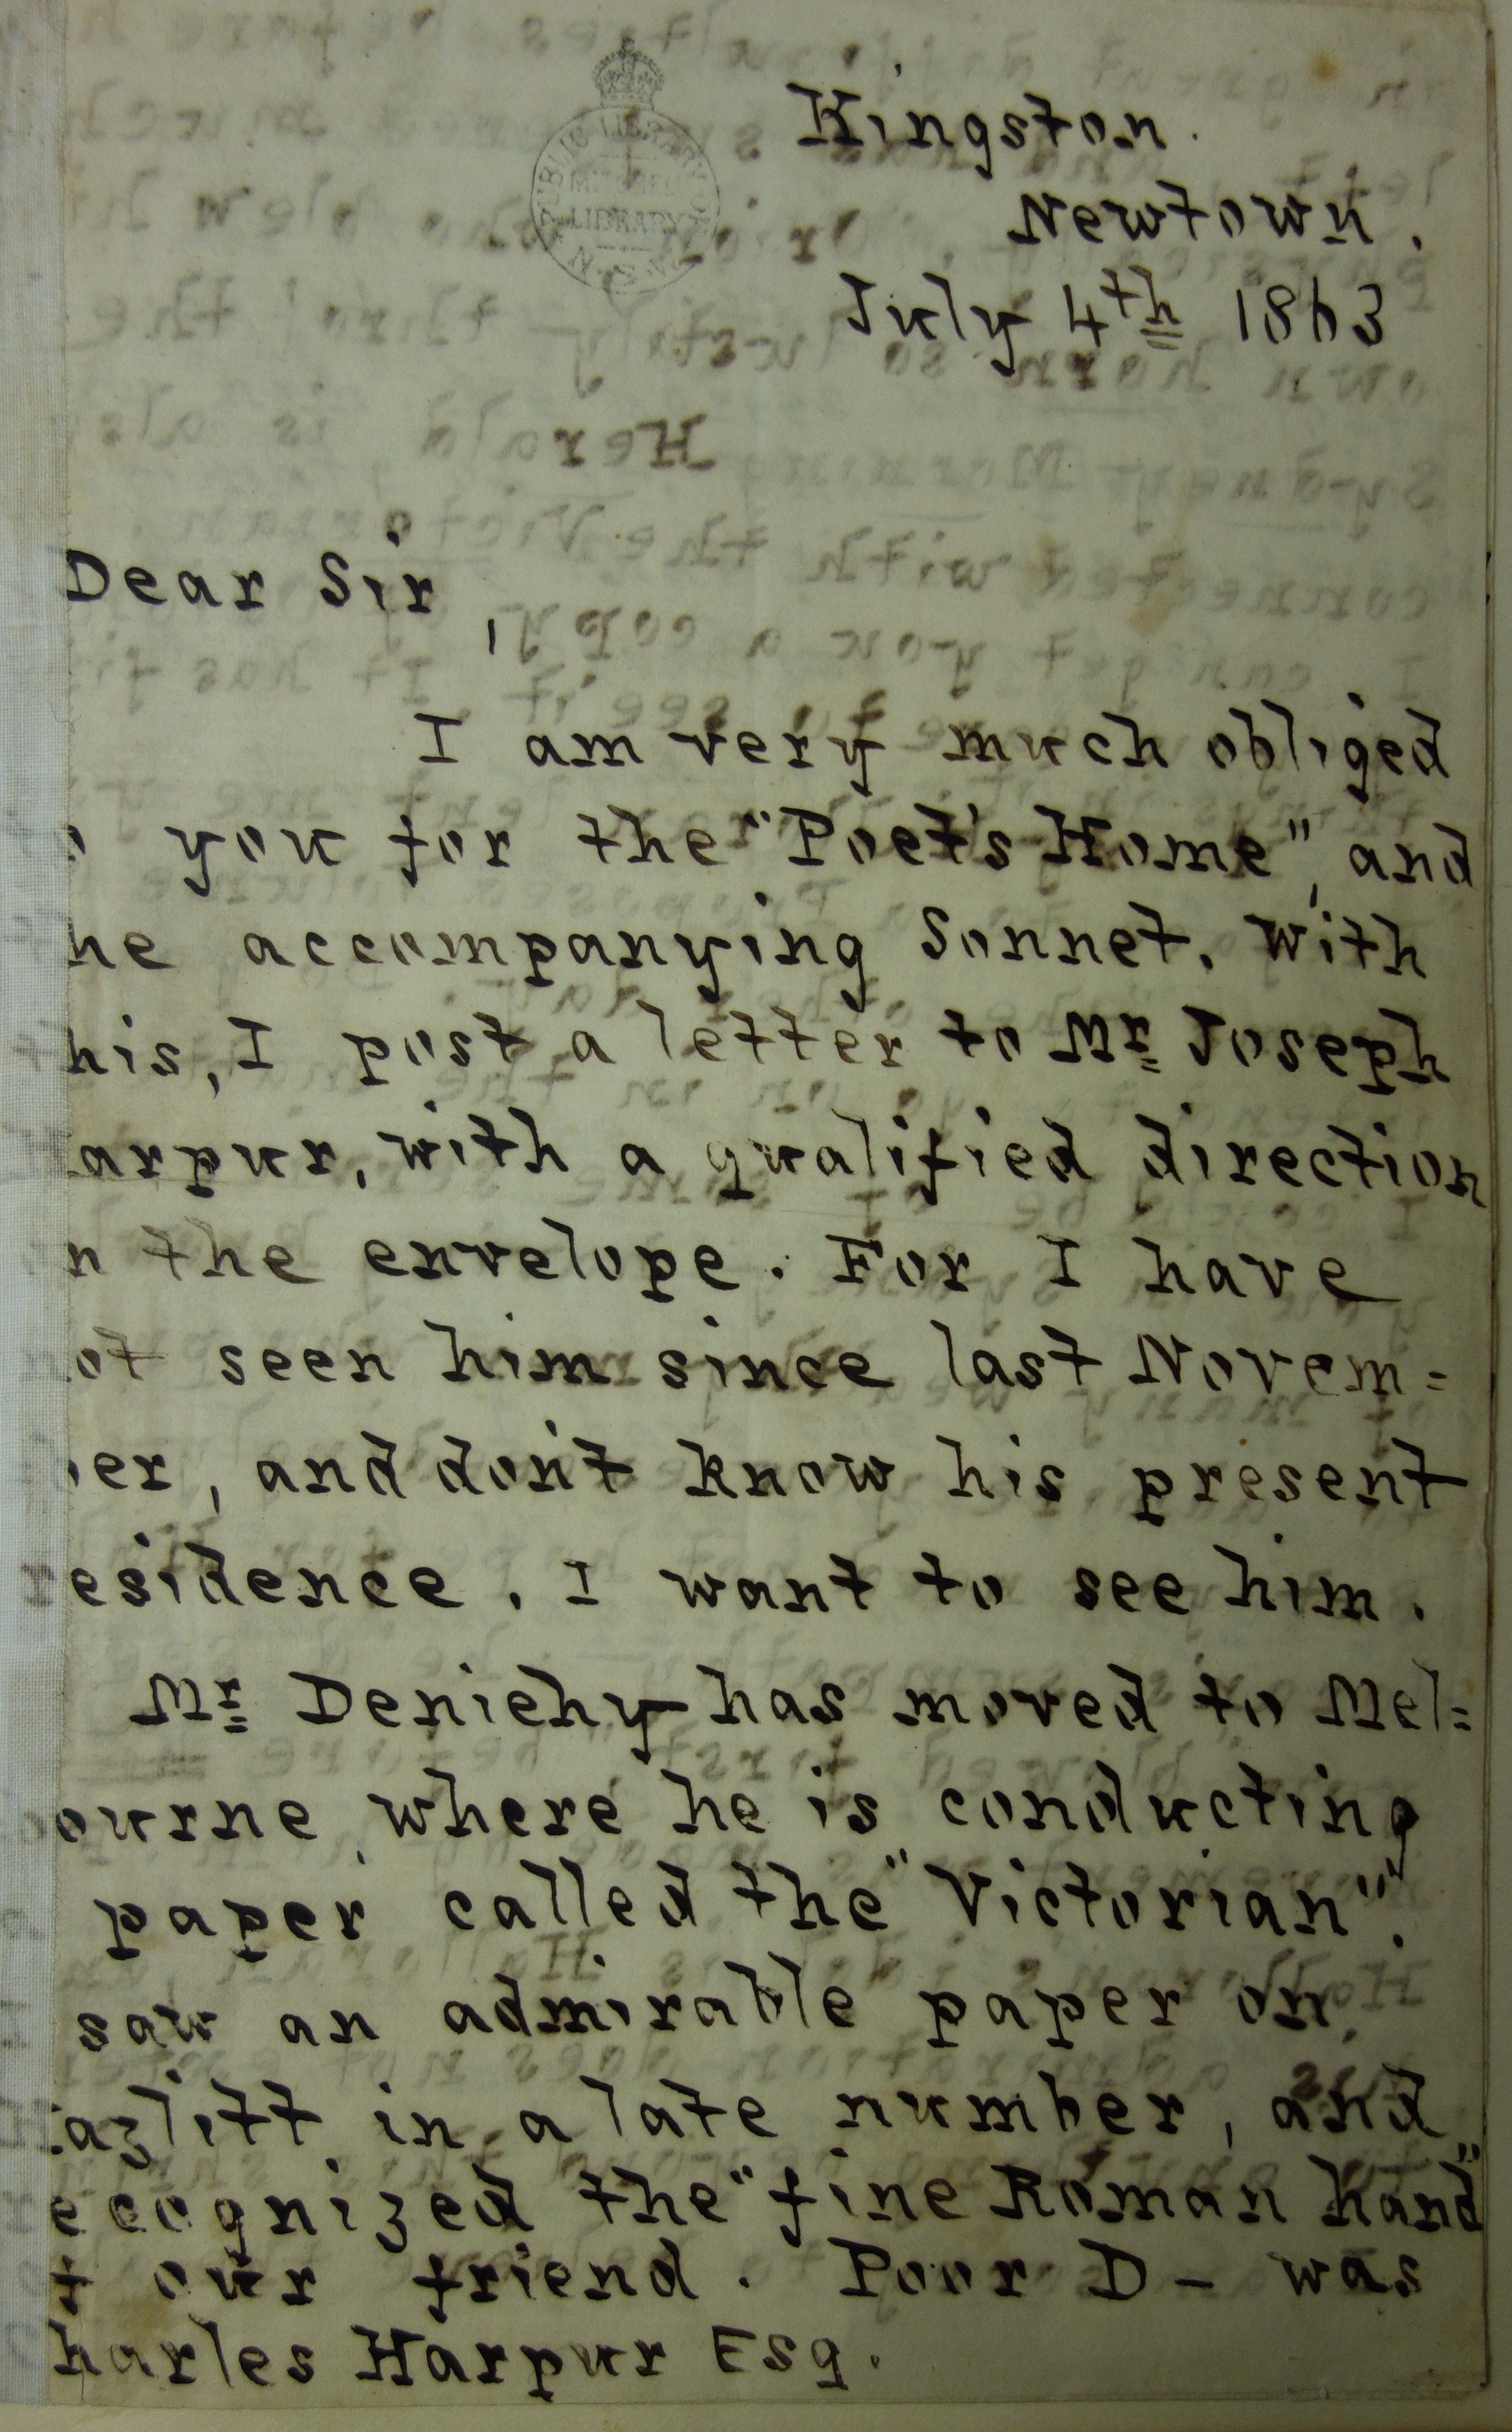 PUBLIC LIBRARY OF
MITCHELL
LIBRARY
N.S.W.
Kingston.
Newtown.
July 4th 1863
Dear Sir,
I am very much obliged
o you for the "Poet's Home", and
he accompanying Sonnet. With
his, I post a letter to Mr Joseph
arpur, with a qualified direction
n the envelope. For I have
ot seen him since last Novem=
er, and don't know his present
residence. I want to see him.
Mr Deniehy has moved to Mel=
ourne, where he is conducting
paper called the "Victorian".
saw an admirable paper on
azlitt in a late number, and
ecognized the "fine Roman hand"
f our friend. Poor D— was
harles Harpur Esq.